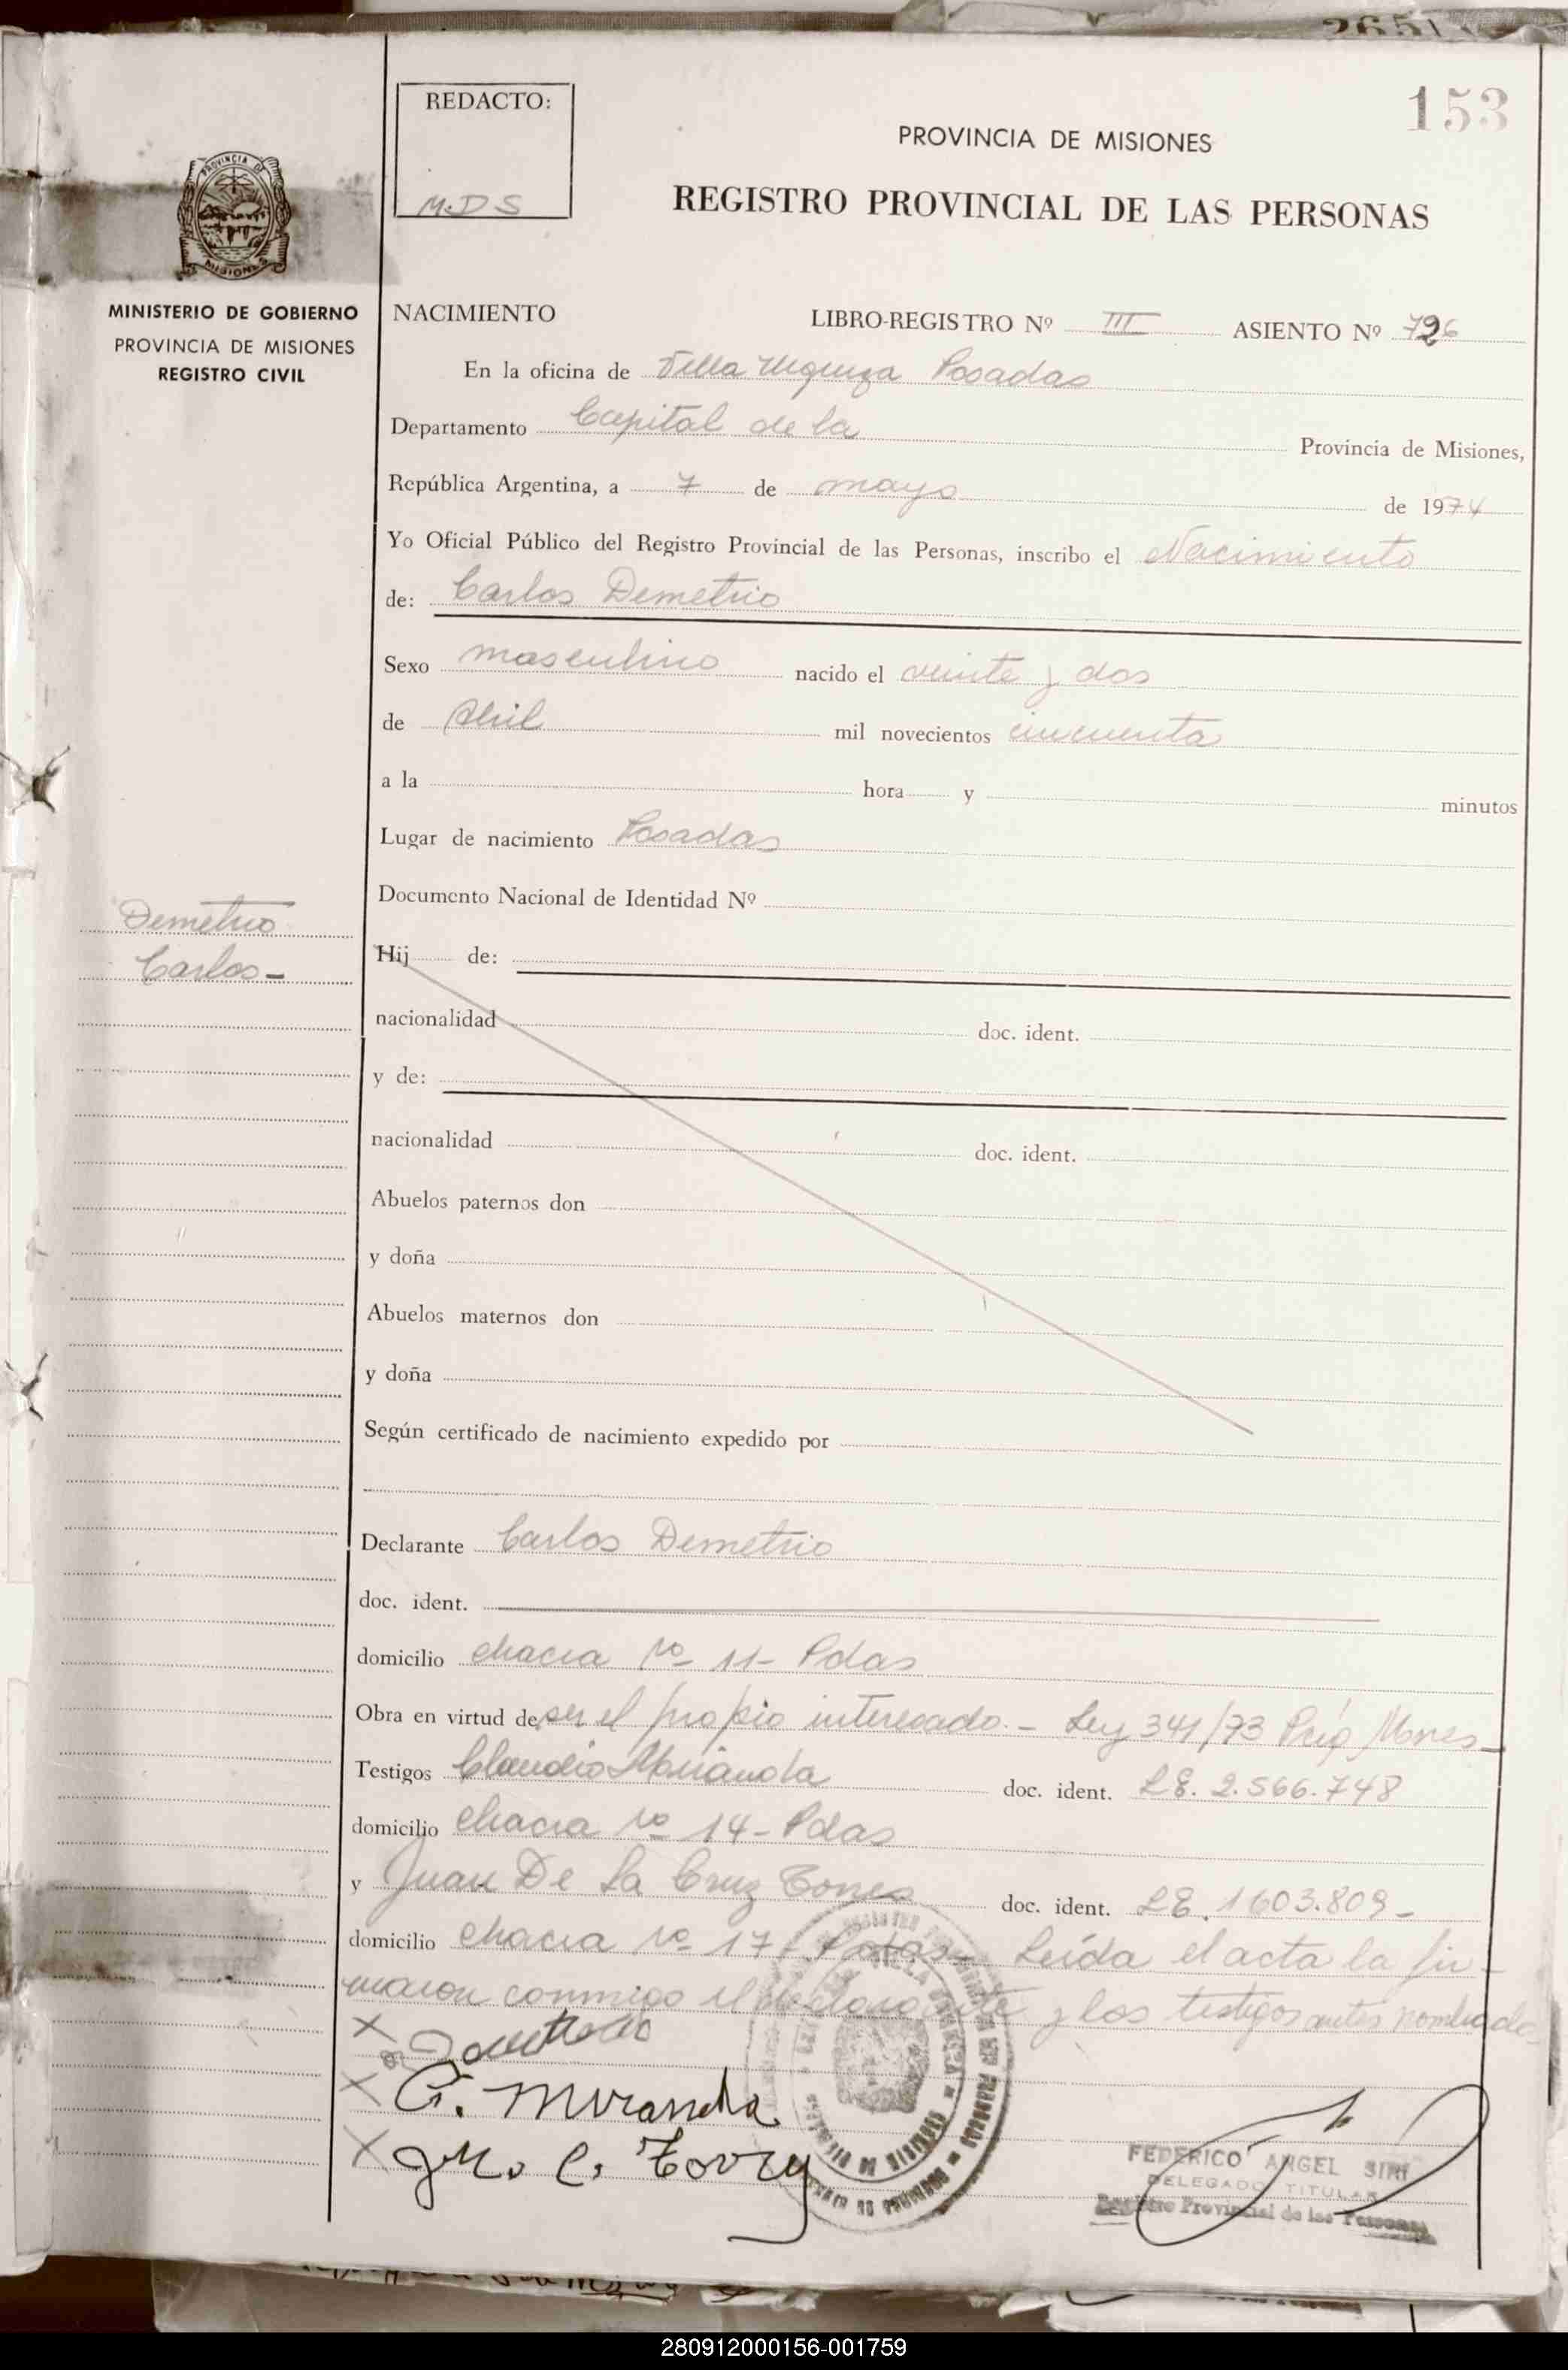 153
REDACTO:
M.D S
PROVINCIA DE MISIONES
REGISTRO PROVINCIAL DE LAS PERSONAS
PROVINCIA DE
MISIONES
MINISTERIO DE GOBIERNO
PROVINCIA DE MISIONES
REGISTRO CIVIL
NACIMIENTO LIBRO-REGISTRO Nº III ASIENTO Nº 796
En la oficina de Villa Urquiza Posadas
Departamento Capital de la Provincia de Misiones,
República Argentina, a 7 de mayo de 1974
Yo Oficial Público del Registro Provincial de las Personas, inscribo el Nacimiento
de: Carlos Demetrio
Sexo masculino nacido el veinte y dos
de Abril mil novecientos cincuenta
a la hora y minutos
Lugar de nacimiento Posadas
Documento Nacional de Identidad Nº
Demetrio
Carlos-
Hij de:
nacionalidad doc. ident.
y de:
nacionalidad doc. ident.
Abuelos paternos don
y doña
Abuelos maternos don
y doña
Según certificado de nacimiento expedido por
Declarante Carlos Demetrio
doc. ident.
domicilio chacra Nº 11- Pdas
Obra en virtud de ser el propio interesado.- Ley 341/73 Mnes-
Testigos Claudio Miranda doc. ident. LE. 2.566.748
domicilio chacra Nº 14- Pdas
y Juan De La Cruz Torres doc. ident. LE. 1603.809-
domicilio chacra Nº 17- Pdas- Leída el acta la fir-
maron conmigo el declarante y los testigos antes nombrado
C. Miranda
C. Torre
FEDERICO ANGEL SIRI
DELEGADO TITULAR
Registro Provincial de las Personas
280912000156-001759